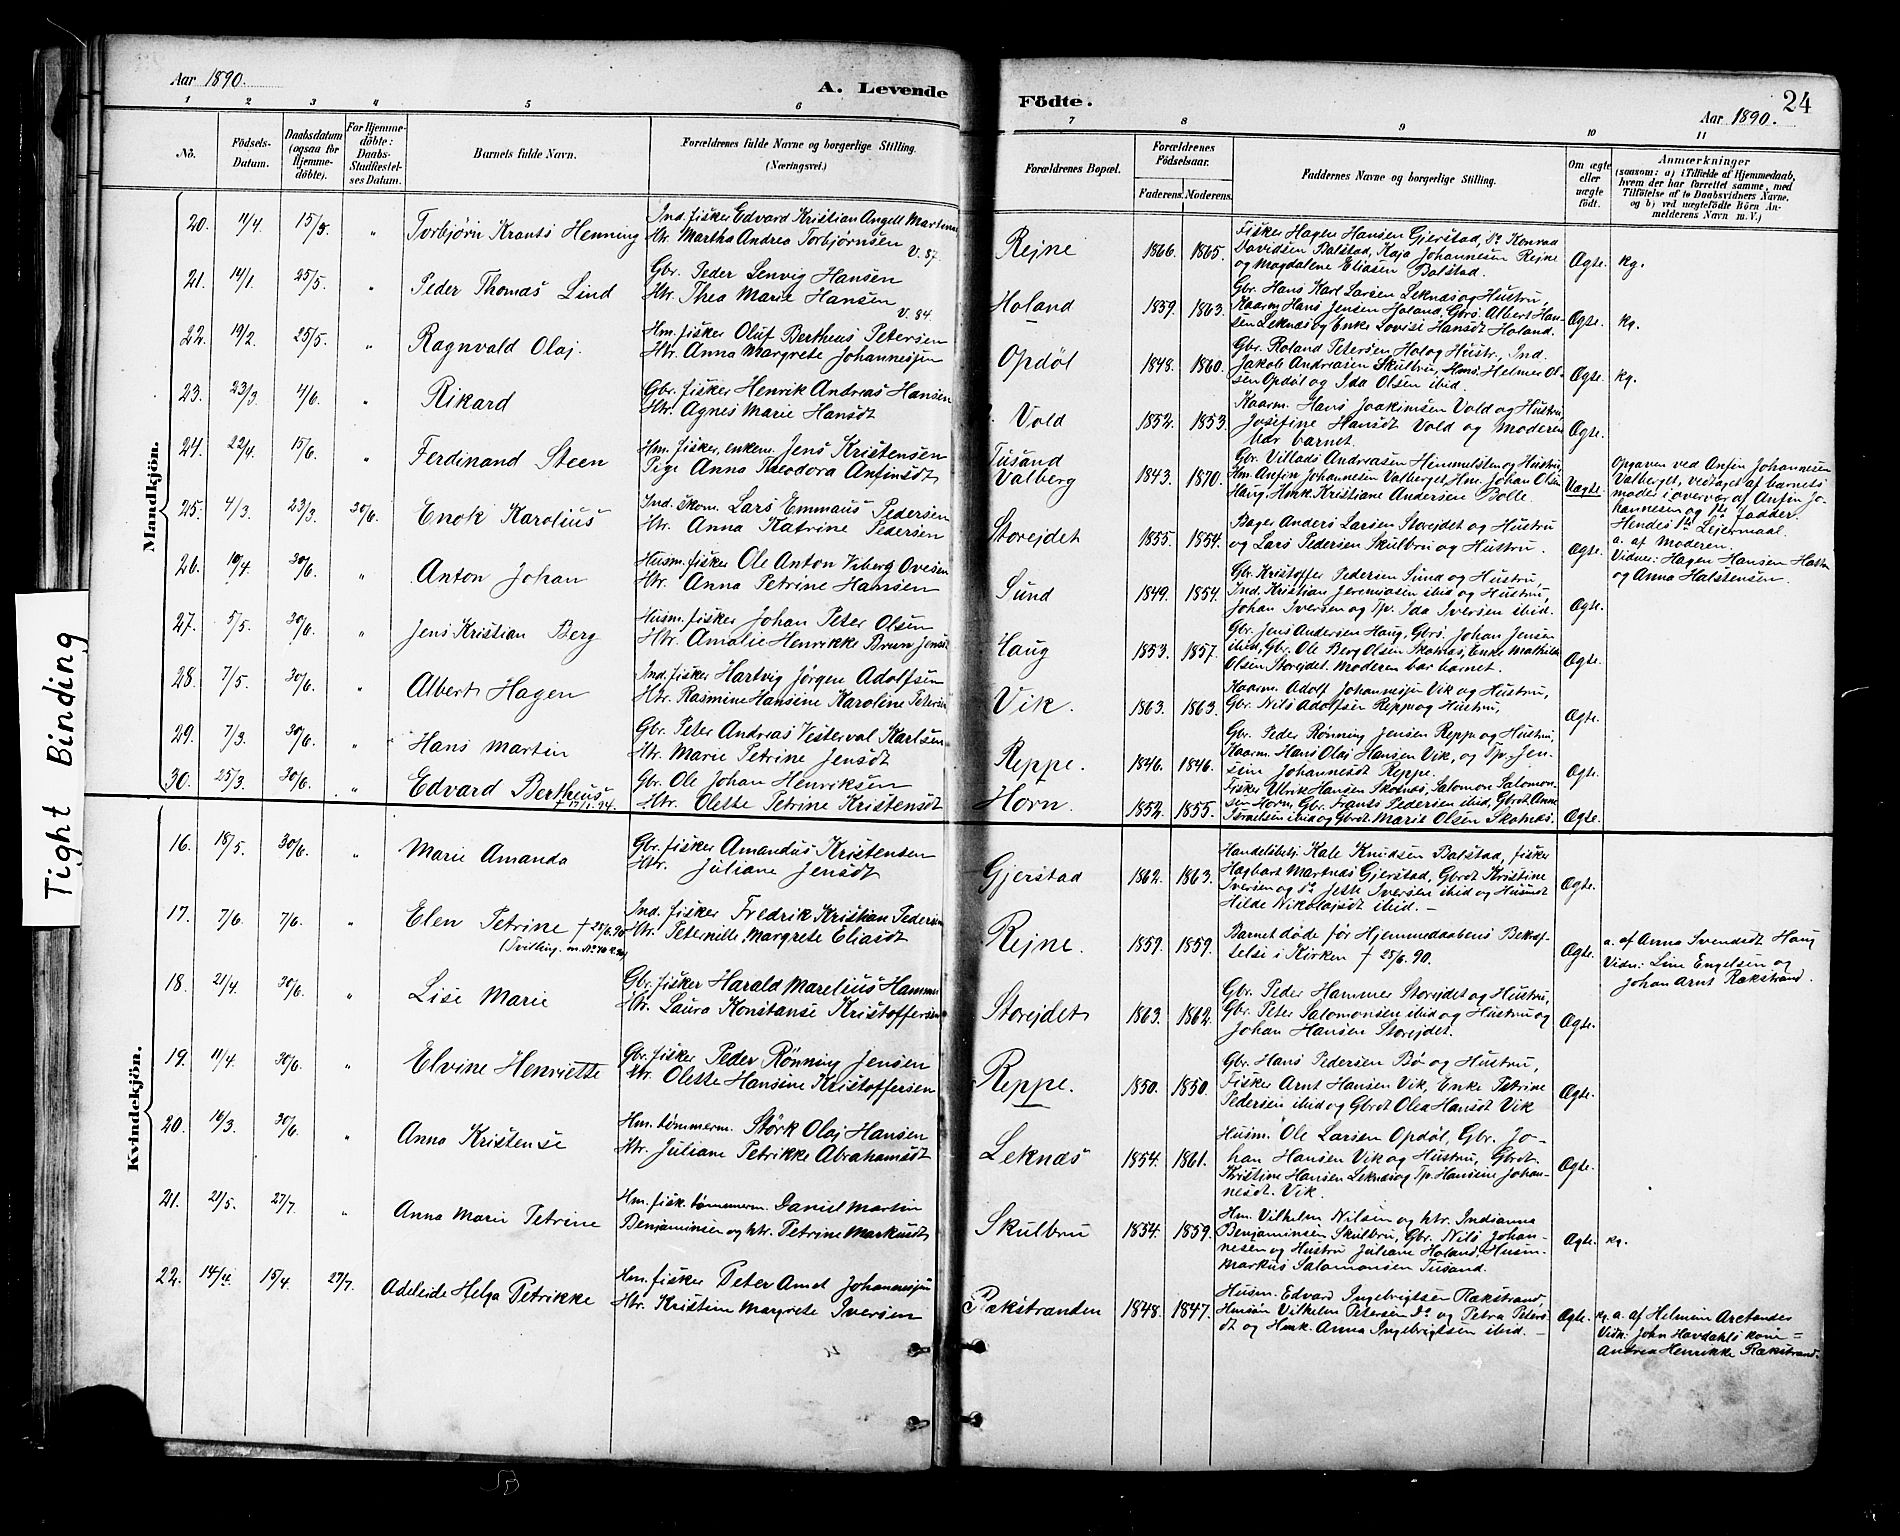 Aar 1890.
A. Levende
1 2 3 4 5 6
No.
Födsels-Datum.
Daabsdatum (ogsaa for Hjemme-döbte).
For Hjemme-döbte: Daabs-Stadfæstel-ses Datum.
Barnets fulde Navn.
Forældrenes fulde Navne og borgerlige Stilling. (Næringsvei.)
Mandkjön.
20. 11/4 15/5 " Torbjørn Krants Henning Ind. fisker Edvard Kristian Angell
Htr. Martha Andrea Torbjørnsen V. 87.
21. 14/1 25/5. " Peder Thomas Lind Gbr. Peder Lenvig Hansen
Htr. Thea Marie Hansen V. 84.
22. 19/2. 25/5. " Ragnvald Olaj. Hm. fisker Oluf Bertheus Petersen
Htr. Anna Margrete Johannesen
23. 23/3 4/6. " Rikard Gbr. fisker Henrik Andreas Hansen
Htr. Agnes Marie Hansdt
24. 22/4 15/6. " Ferdinand Steen Hm. fisker, enkem. Jens Kristensen
Pige Anna Theodora Anfinsdt
25. 4/3. 23/3. 30/6. Enok Karolius Ind. skom. Lars Emmaus Pedersen
Htr. Anna Katrine Pedersen
26. 10/4. 30/6. " Anton Johan Husm. fisker Ole Anton Viberg Ovesen
Htr. Anna Petrine Hansen
27. 5/5. 30/6. " Jens Kristian Berg Husm. fisker Johan Peter Olsen
Htr. Amalie Henrikke Bruun
28. 7/5. 30/6. " Albert Hagen Ind. fisker Hartvig Jørgen Adolfsen
Htr. Rasmine Hansine Karoline Petersen
29. 7/3. 30/6. " Hans Martin Gbr. Peter Andreas Vesterval Karlsen
Htr. Marie Petrine Jensdt
30. 25/3. 30/6. " Edvard Bertheus Gbr. Ole Johan Henriksen
Htr. Olette Petrine Kristensdt
Kvindekjön.
16. 18/5. 30/6. " Marie Amanda Gbr. fisker Amandus Kristensen
Htr. Juliane Jensdt
17. 7/6. 7/6. " Elen Petrine † 25/6.90 Ind. fisker Fredrik Kristian Pedersen
(Tvilling Htr. Peternille Margrete Eliasdt
18. 21/4. 30/6. " Lise Marie Gbr. fisker Harald Marelius Hammer
Htr. Laura Konstanse Kristoffersen
19. 11/4. 30/6. " Elvine Henriette Gbr. fisker Peder Rönning Jensen
Htr. Olette Hansine Kristoffersen
20. 16/3. 30/6. " Anna Kristense Hm. tömmerm. Störk Olaj Hansen
Htr. Juliane Petrikke Abrahamsdt
21. 21/5. 27/7. " Anna Marie Petrine Hm. fisk. tömmerm. Daniel Martin
Benjaminsen og htr. Petrine Markusdt
22. 14/4. 15/4. 27/7. Adeleide Helga Petrikke Hm. fisker Peter Arnt Johannesen
Htr. Kristine Margrete Iversen
Tight Binding
Födte.
24
Aar 1890.
7 8 9 10 11
Forældrenes Bopæl.
Forældrenes Födselsaar.
Faderens. Moderens.
Faddernes Navne og borgerlige Stilling.
Om ægte eller uægte födt.
Anmærkninger
(saasom: a) i Tilfælde af Hjemmedaab, hvem der har forrettet samme, med Tilföielse af to Daabsvidners Navne, og b) ved uægtefödte Börn An-melderens Navn m. V.)
Rejne 1866. 1865. Fisker Hagen Hansen Gjerstad, Do Konrad
Davidsen Balstad, Kaja Johannesen Rejne
og Magdalene Eliasen Balstad. Ægte. kg.
Holand 1859. 1863. Gbr. Hans Karl Larsen Leknæs og Hustru,
Kaarm. Hans Jensen Holand, Gbrs. Albert Han-
sen Leknæs og Enke Lovise Hansdt Holand. Ægte. kg.
Opdöl 1848. 1860. Gbr. Roland Petersen Hol og Hustr., Ind.
Jakob Andreasen Skulbru, Hms. Helmer Ol-
sen Opdöl og Ida Olsen ibid. Ægte. kg.
Vold 1852. 1853. Kaarm. Hans Joakimsen Vold og Hustru,
Josefine Hansdt Vold og Moderen
bar barnet. Ægte.
Tusand
Valberg 1843. 1870. Gbr. Villads Andreasen Himmelsten og Hustru,
Hm. Anfin Johannesen Valberget, Hm. Johan Olsen
Haug, Hmk. Kristiane Andersen Bolle. Uægte. Opgaven ved Anfin Johannesen
Valberget, vedtaget af barnets
moder i overvær af Anfin Jo-
hannesen og fadder.
Hendes Lejermaal.
Storejdet 1855. 1854. Bager Anders Larsen Storejdet og Hustru
og Lars Pedersen Skulbru og Hustru. Ægte. a. af Moderen.
Vidner: Hagen Hansen
og Anna Halstensen.
Sund 1849. 1854. Gbr. Kristoffer Pedersen Sund og Hustru,
Ind. Kristian Jeremiasen ibid og Hustru,
Johan Iversen og Tp. Ida Iversen ibid. Ægte.
Haug 1853. 1857. Gbr. Jens Andersen Haug, Gbrs. Johan Jensen
ibid, Gbr. Ole Berg Olsen Skotnæs, Enke Mathilde
Olsen Storejdet. Moderen bar barnet. Ægte.
Vik. 1863. 1863. Kaarm. Adolf Johannesen Vik og Hustru,
Gbr. Nils Adolfsen Reppe og Hustru, Ægte.
Reppe. 1846. 1846. Gbr. Peder Rønning Jensen Reppe og Hustru,
Kaarm. Hans Olaj Hansen Vik, og Tp. Jen-
sine Johannesdt Reppe. Ægte.
Horn. 1852. 1855. Fisker Ulrik Hansen Skotnæs, Salomon Salomon-
sen Horn, Gbr. Frants Pedersen ibid, Gbrdt. Anne
Israelsen ibid og Gbrdt. Marie Olsen Skotnæs. Ægte.
Gjerstad 1862. 1863. Handelsbetj. Kale Knudsen Balstad, fisker
Hagbart Martnæs Gjerstad, Gbrdt Kristine
Iversen og Do Jette Iversen ibid og Husmdt
Hilde Nikolajsdt ibid. – Ægte.
Rejne. 1859. 1859. Barnet døde før Hjemmedaabens Bekræf-
telse i Kirken † 25/6.90. Ægte. a. af Anna Svendsdt Haug
Vidn: Line Engelsen og
Johan Arnt Rækstrand.
Storejdet 1863. 1862. Gbr. Peder Hammer Storejdet og Hustru,
Gbr. Peter Salomonsen ibid og Hustru og
Johan Hansen Storejdet. Ægte.
Reppe. 1850. 1850. Gbr. Hans Pedersen Bø og Hustru,
Fisker Arnt Hansen Vik, Enke Petrine
Pedersen ibid og Gbrdt Olea Hansdt Vik Ægte.
Leknæs 1854. 1861. Husm. Ole Larsen Opdöl, Gbr. Jo-
han Hansen Vik og Hustru, Gbrdt.
Kristine Hansen Leknæs og Tp. Hansine Johan-
nesdt. Vik. Ægte.
Skulbru 1854. 1859. Hm. Vilhelm Nilsen og htr. Indianna
Benjaminsen Skulbru, Gbr. Nils Johan-
nesen og Hustru Juliane Holand, Husm.
Markus Salomonsen Tusand. Ægte. kg.
Rækstranden 1848. 1847. Husm. Edvard Ingebrigtsen Rækstrand,
Hmsøn Vilhelm Petersen Do og Petra Peters-
dt og Hmk. Anna Ingebrigtsen ibid. – Ægte. kg. a. af Helmine Arctander
Vidn: John Havdahls kone =
Andrea Henrikke Rækstrand.